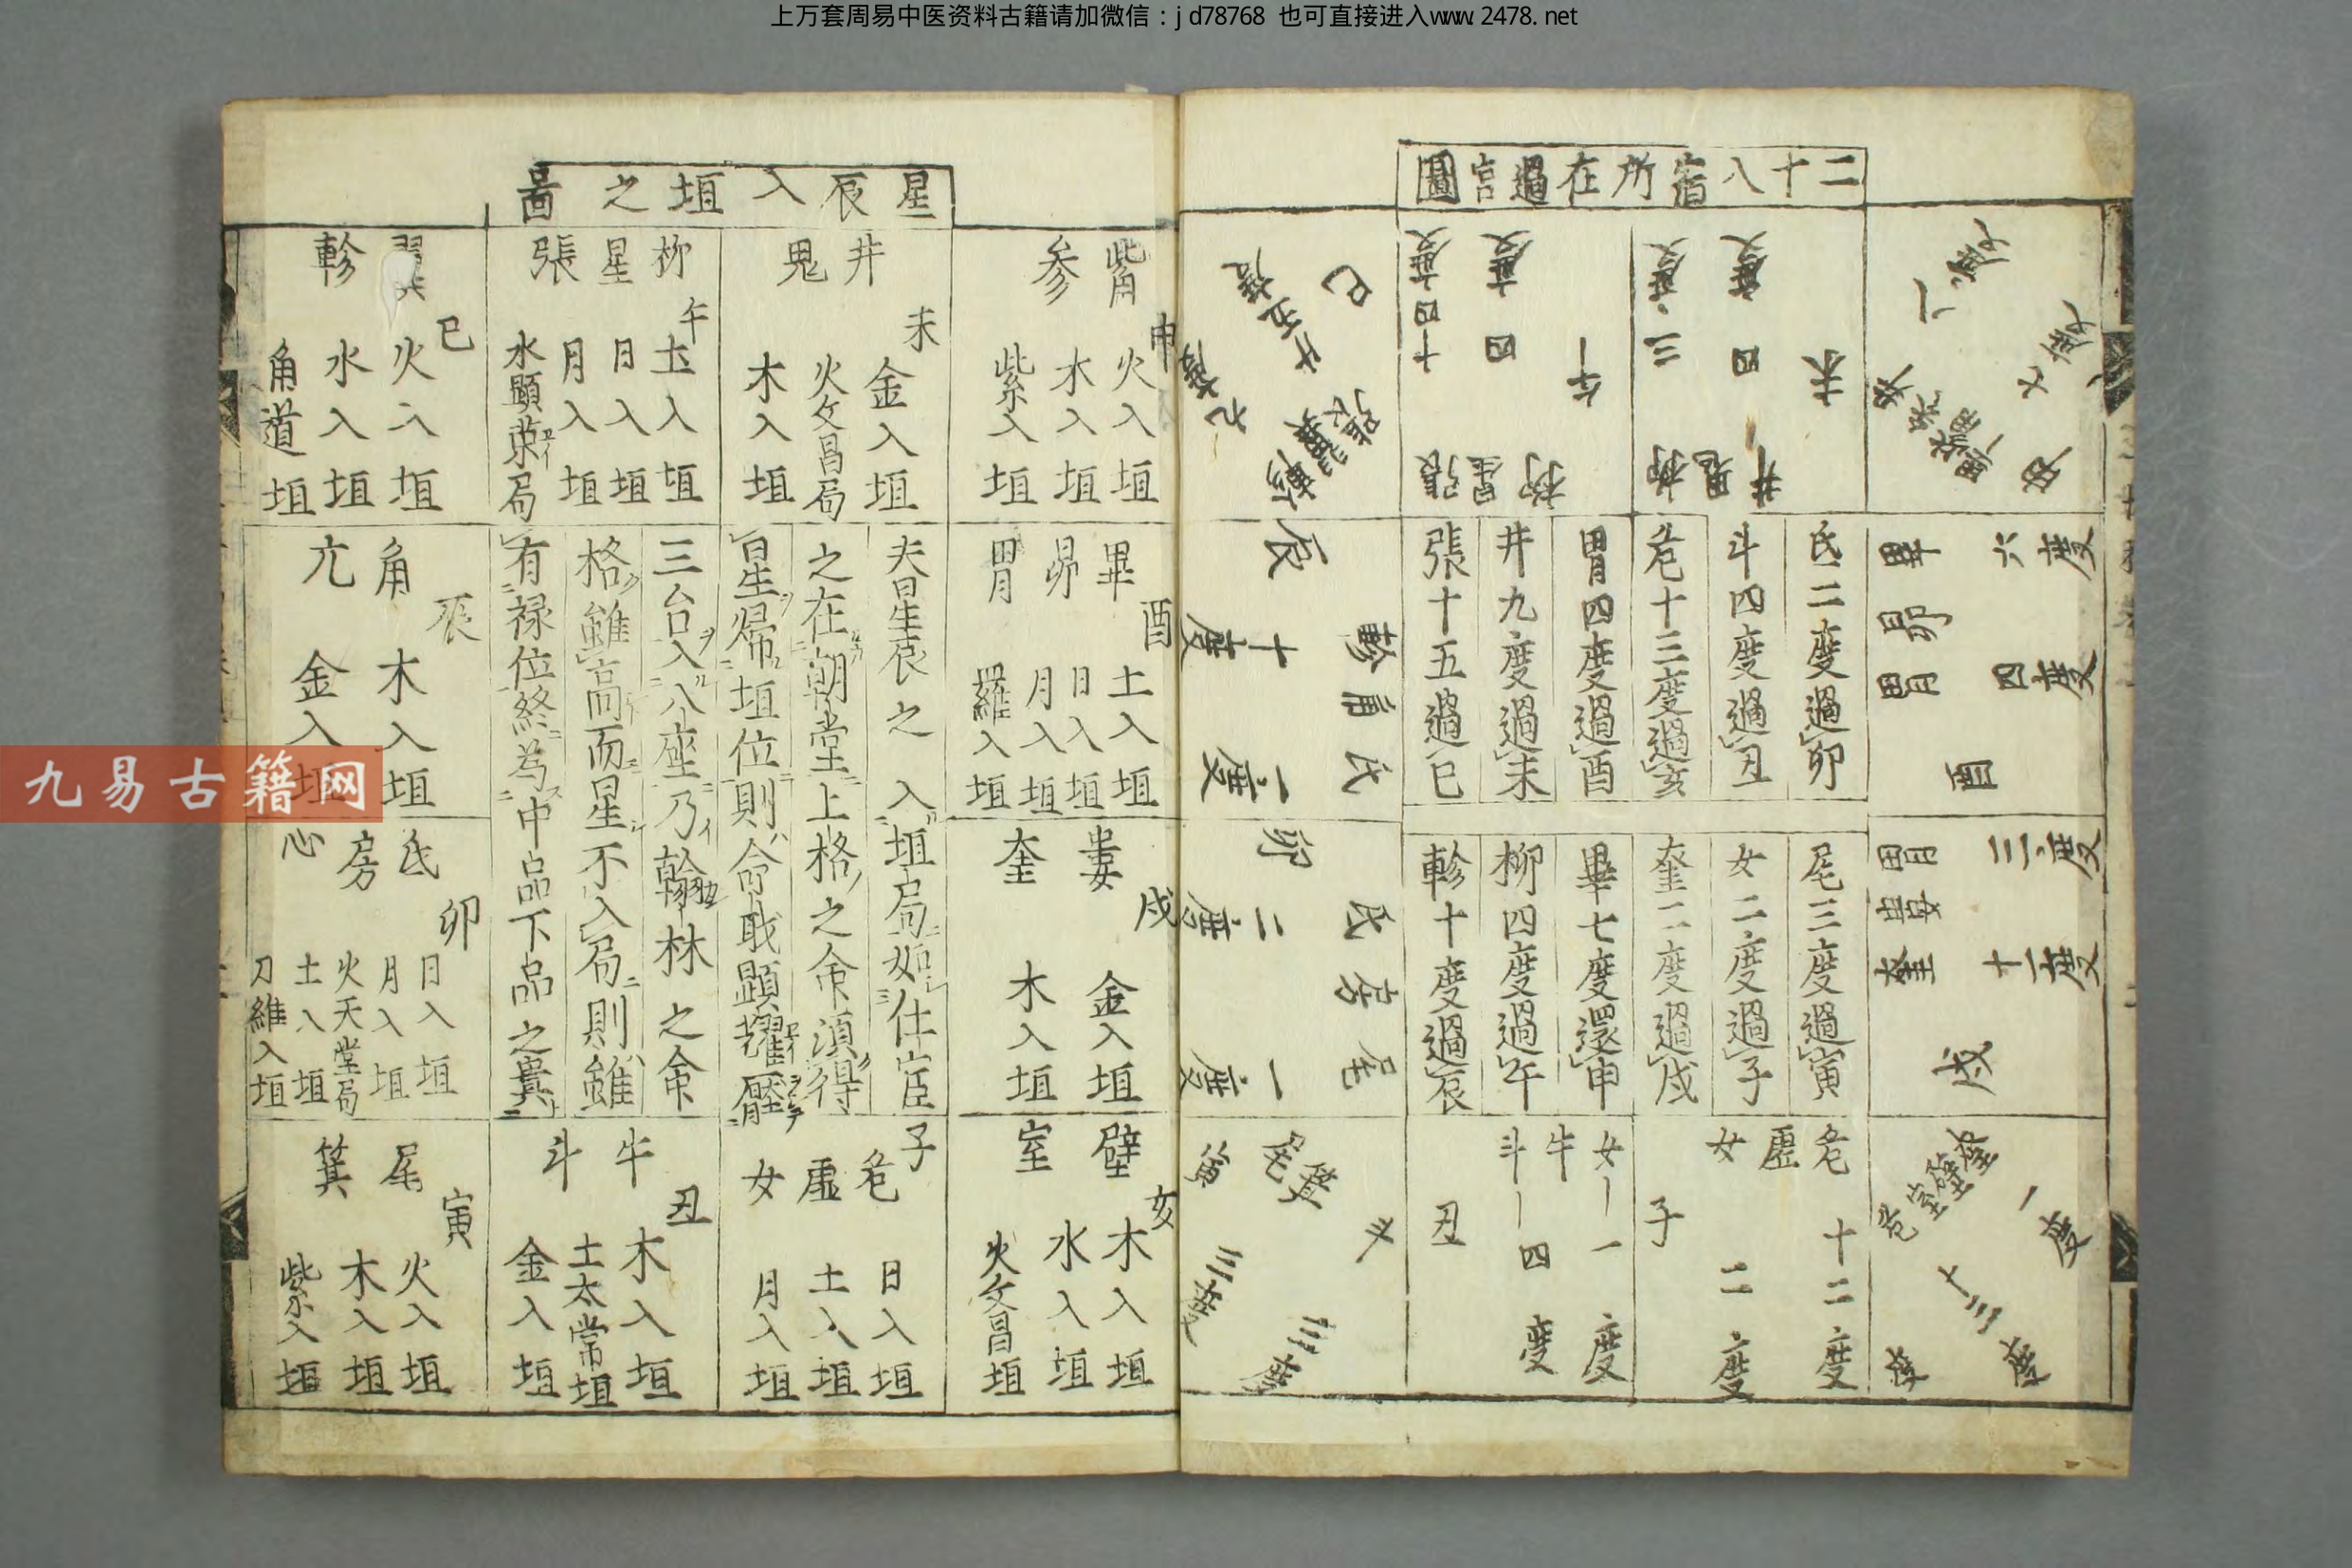 上万套周易中医资料古籍请加微信：jd78768 也可直接进入www.2478.net
二十八宿所在過宮圖
八度
七度
申
未
四度
井
鬼
柳
三度
午
柳
四度
星
張
十四度
巳
張
翼
軫
十五度
九度
畢
昴
胃
六度
四度
酉
氐二度過卯
斗四度過丑
危十三度過亥
胃四度過酉
井九度過未
張十五過巳
辰
軫角氐
十度
一度
胃
婁
奎
三度
十一度
戌
尾三度過寅
女二度過子
奎二度過戌
畢七度還申
柳四度過午
軫十度過辰
卯
氐房尾
二度
一度
奎
壁
室
危
一度
十三度
亥
危
虛
女
十二度
二度
子
女
牛
斗
一度
四度
丑
尾箕斗
寅
三度
三度
星辰入垣之啚
觜
参
申
火入垣
水入垣
紫入垣
井
鬼
未
金入垣
火文昌局
木入垣
柳
星
張
午
土入垣
日入垣
月入垣
水顕荣局
翼
軫
巳
火入垣
水入垣
角道垣
畢
昴
胃
酉
土入垣
日入垣
月入垣
羅入垣
夫星辰之入垣局如仕宦
之在朝堂上格之命須得
星帰垣位則命戢顕耀壓
三台入八座乃翰林之命
格雖高而星不入局則雖
有禄位終為中品下品之貴
角
亢
辰
木入垣
金入垣
婁
奎
戌
金入垣
木入垣
氐
房
心
卯
日入垣
月入垣
火天堂局
土入垣
刀維入垣
壁
室
亥
木入垣
水入垣
火文昌垣
危
虛
女
子
日入垣
土入垣
月入垣
牛
斗
丑
木入垣
土太常垣
金入垣
尾
箕
寅
火入垣
木入垣
紫入垣
九易古籍网